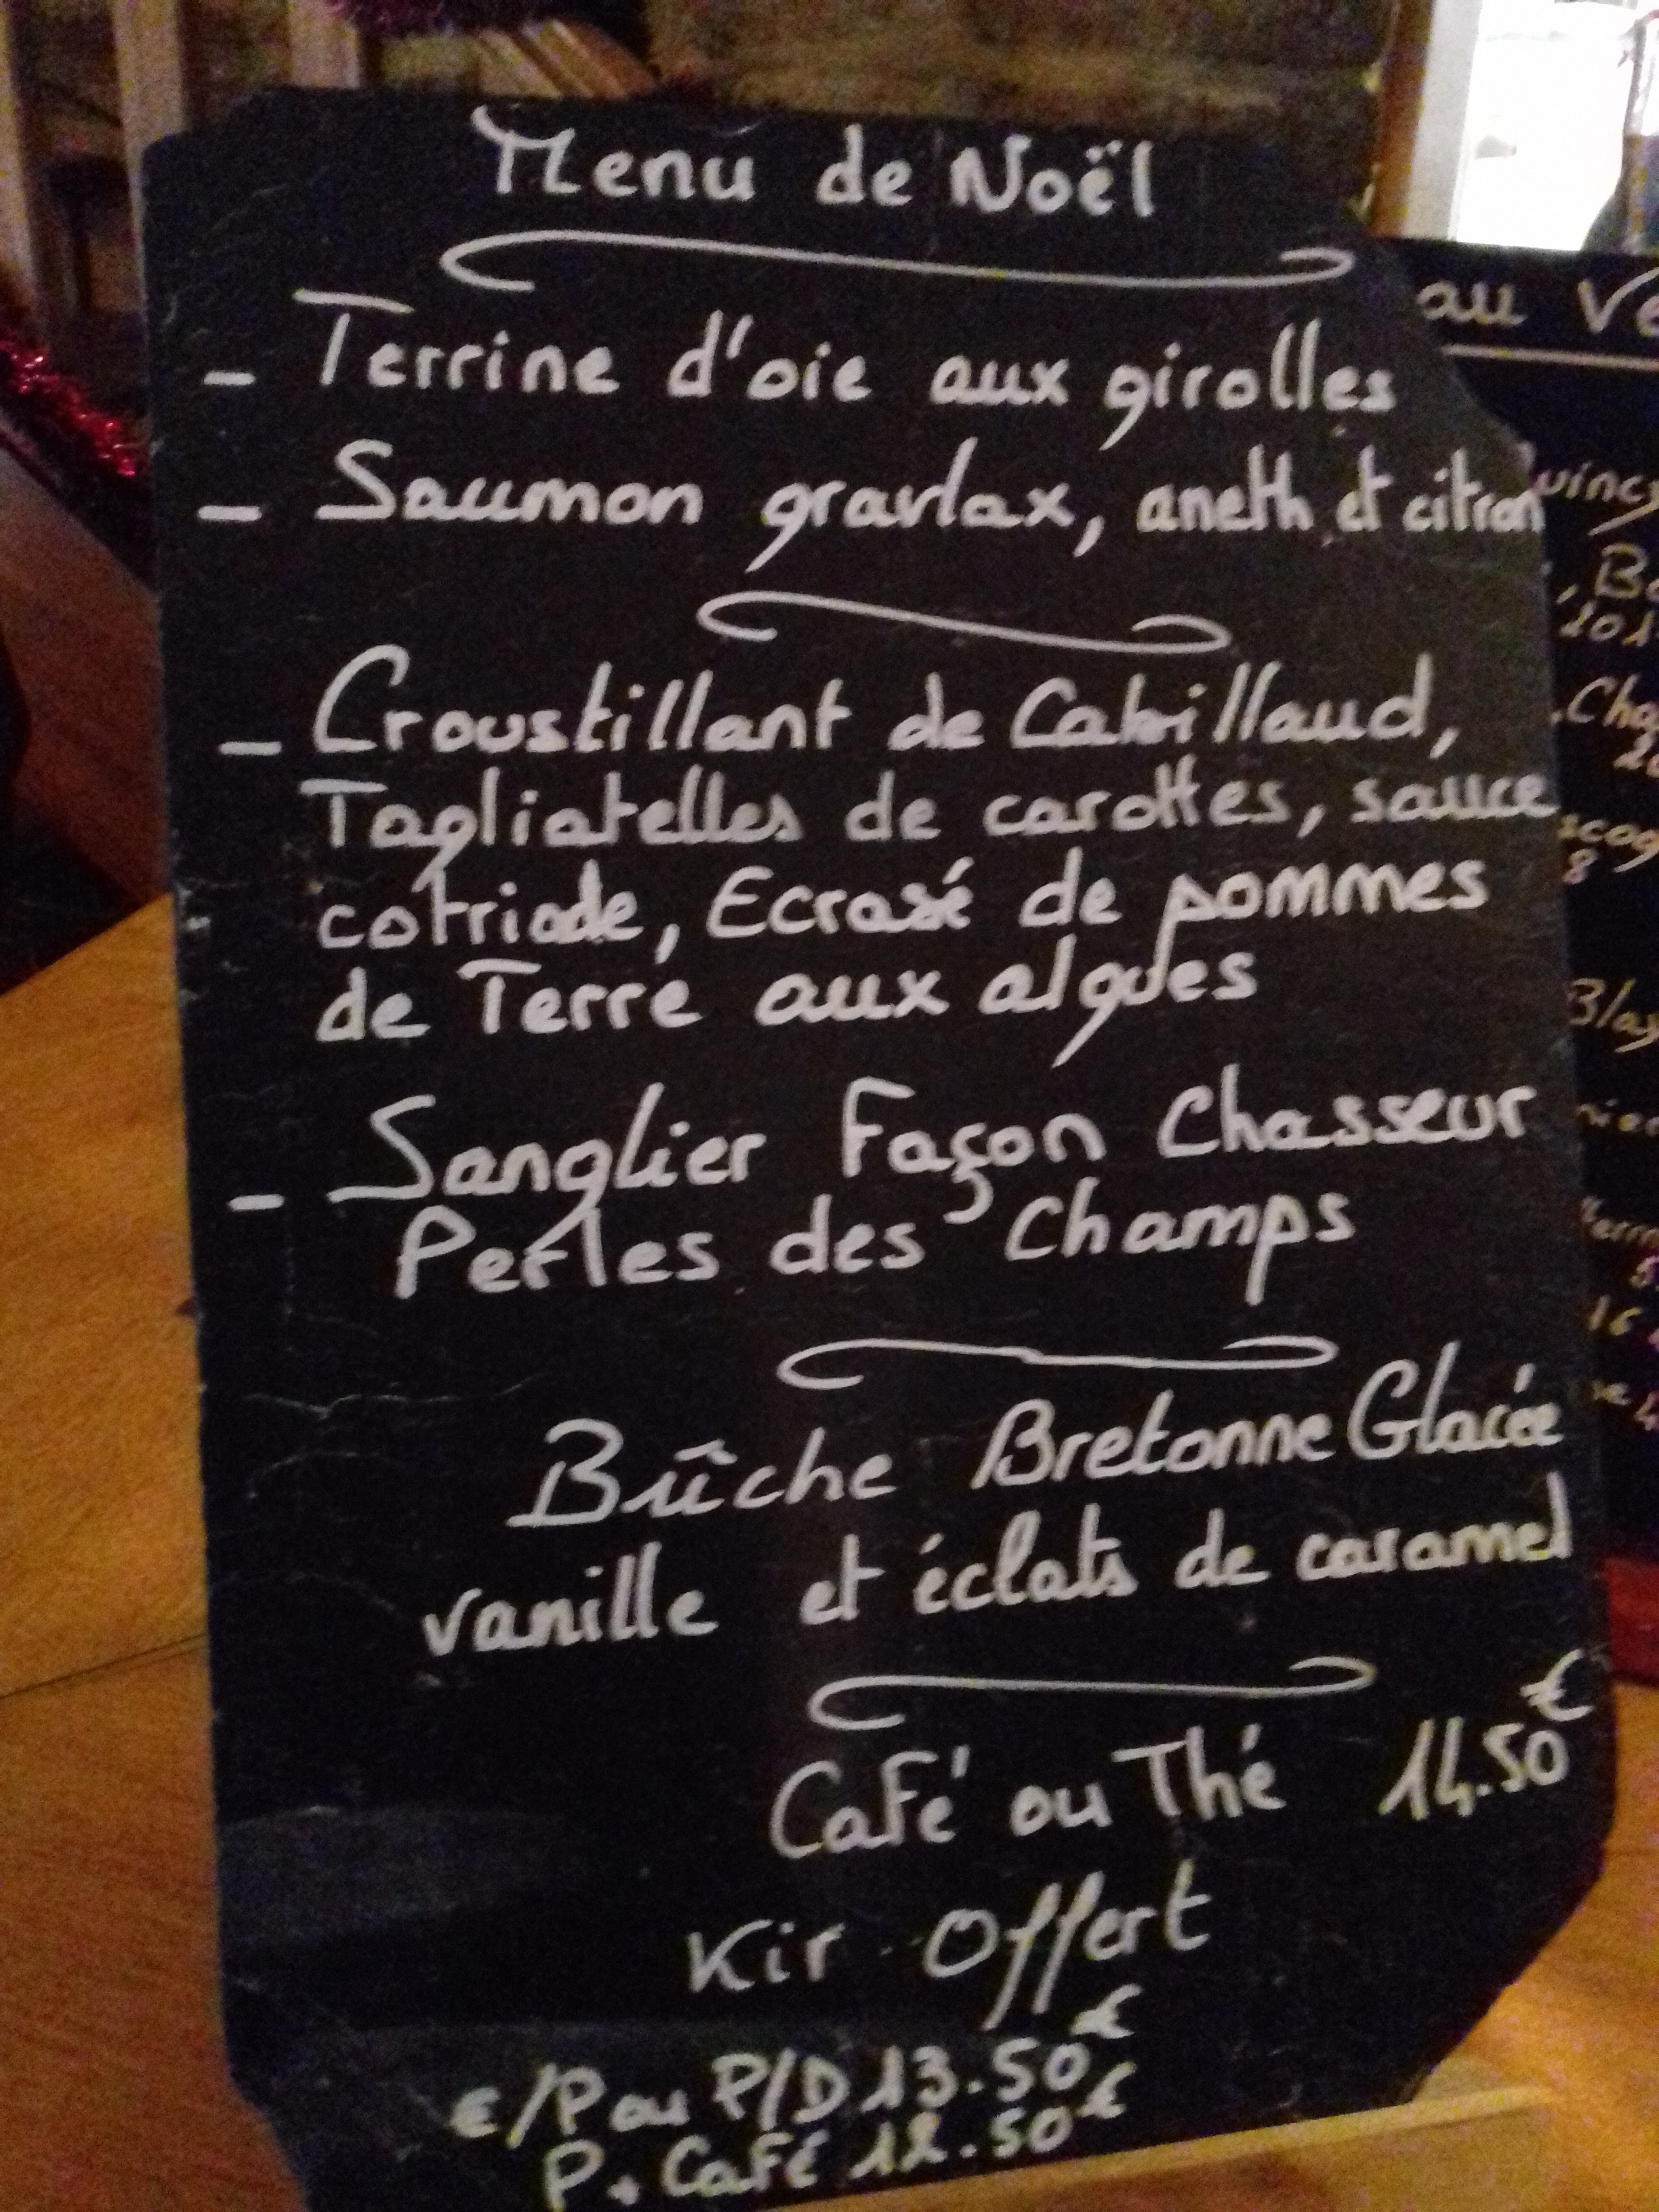 Menu de Noël
- Terrine d'oie aux girolles
- Saumon gravlax, aneth et citron
- Croustillant de Cabillaud,
Tagliatelles de carottes, sauce
cotriade, Ecrasé de pommes
de Terre aux algues
- Sanglier Façon Chasseur
Perles des Champs
Bûche Bretonne Glacée
vanille et éclats de caramel
Café ou Thé 14.50€
Kir Offert
E/P ou P/D 13.50€
P + Café 12.50€
au